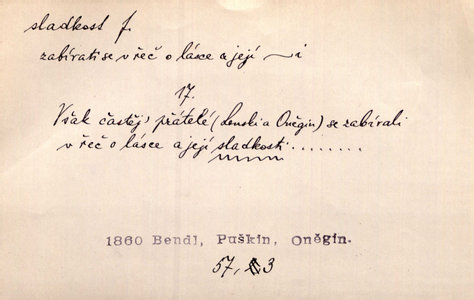 sladkost f.
zabírati se v řeč o lásce a její ~i
17.
Však častěj' přátelé (Lenski a Oněgin) se zabírali
v řeč o lásce a její sladkosti ........
1860 Bendl, Puškin, Oněgin.
57, 3